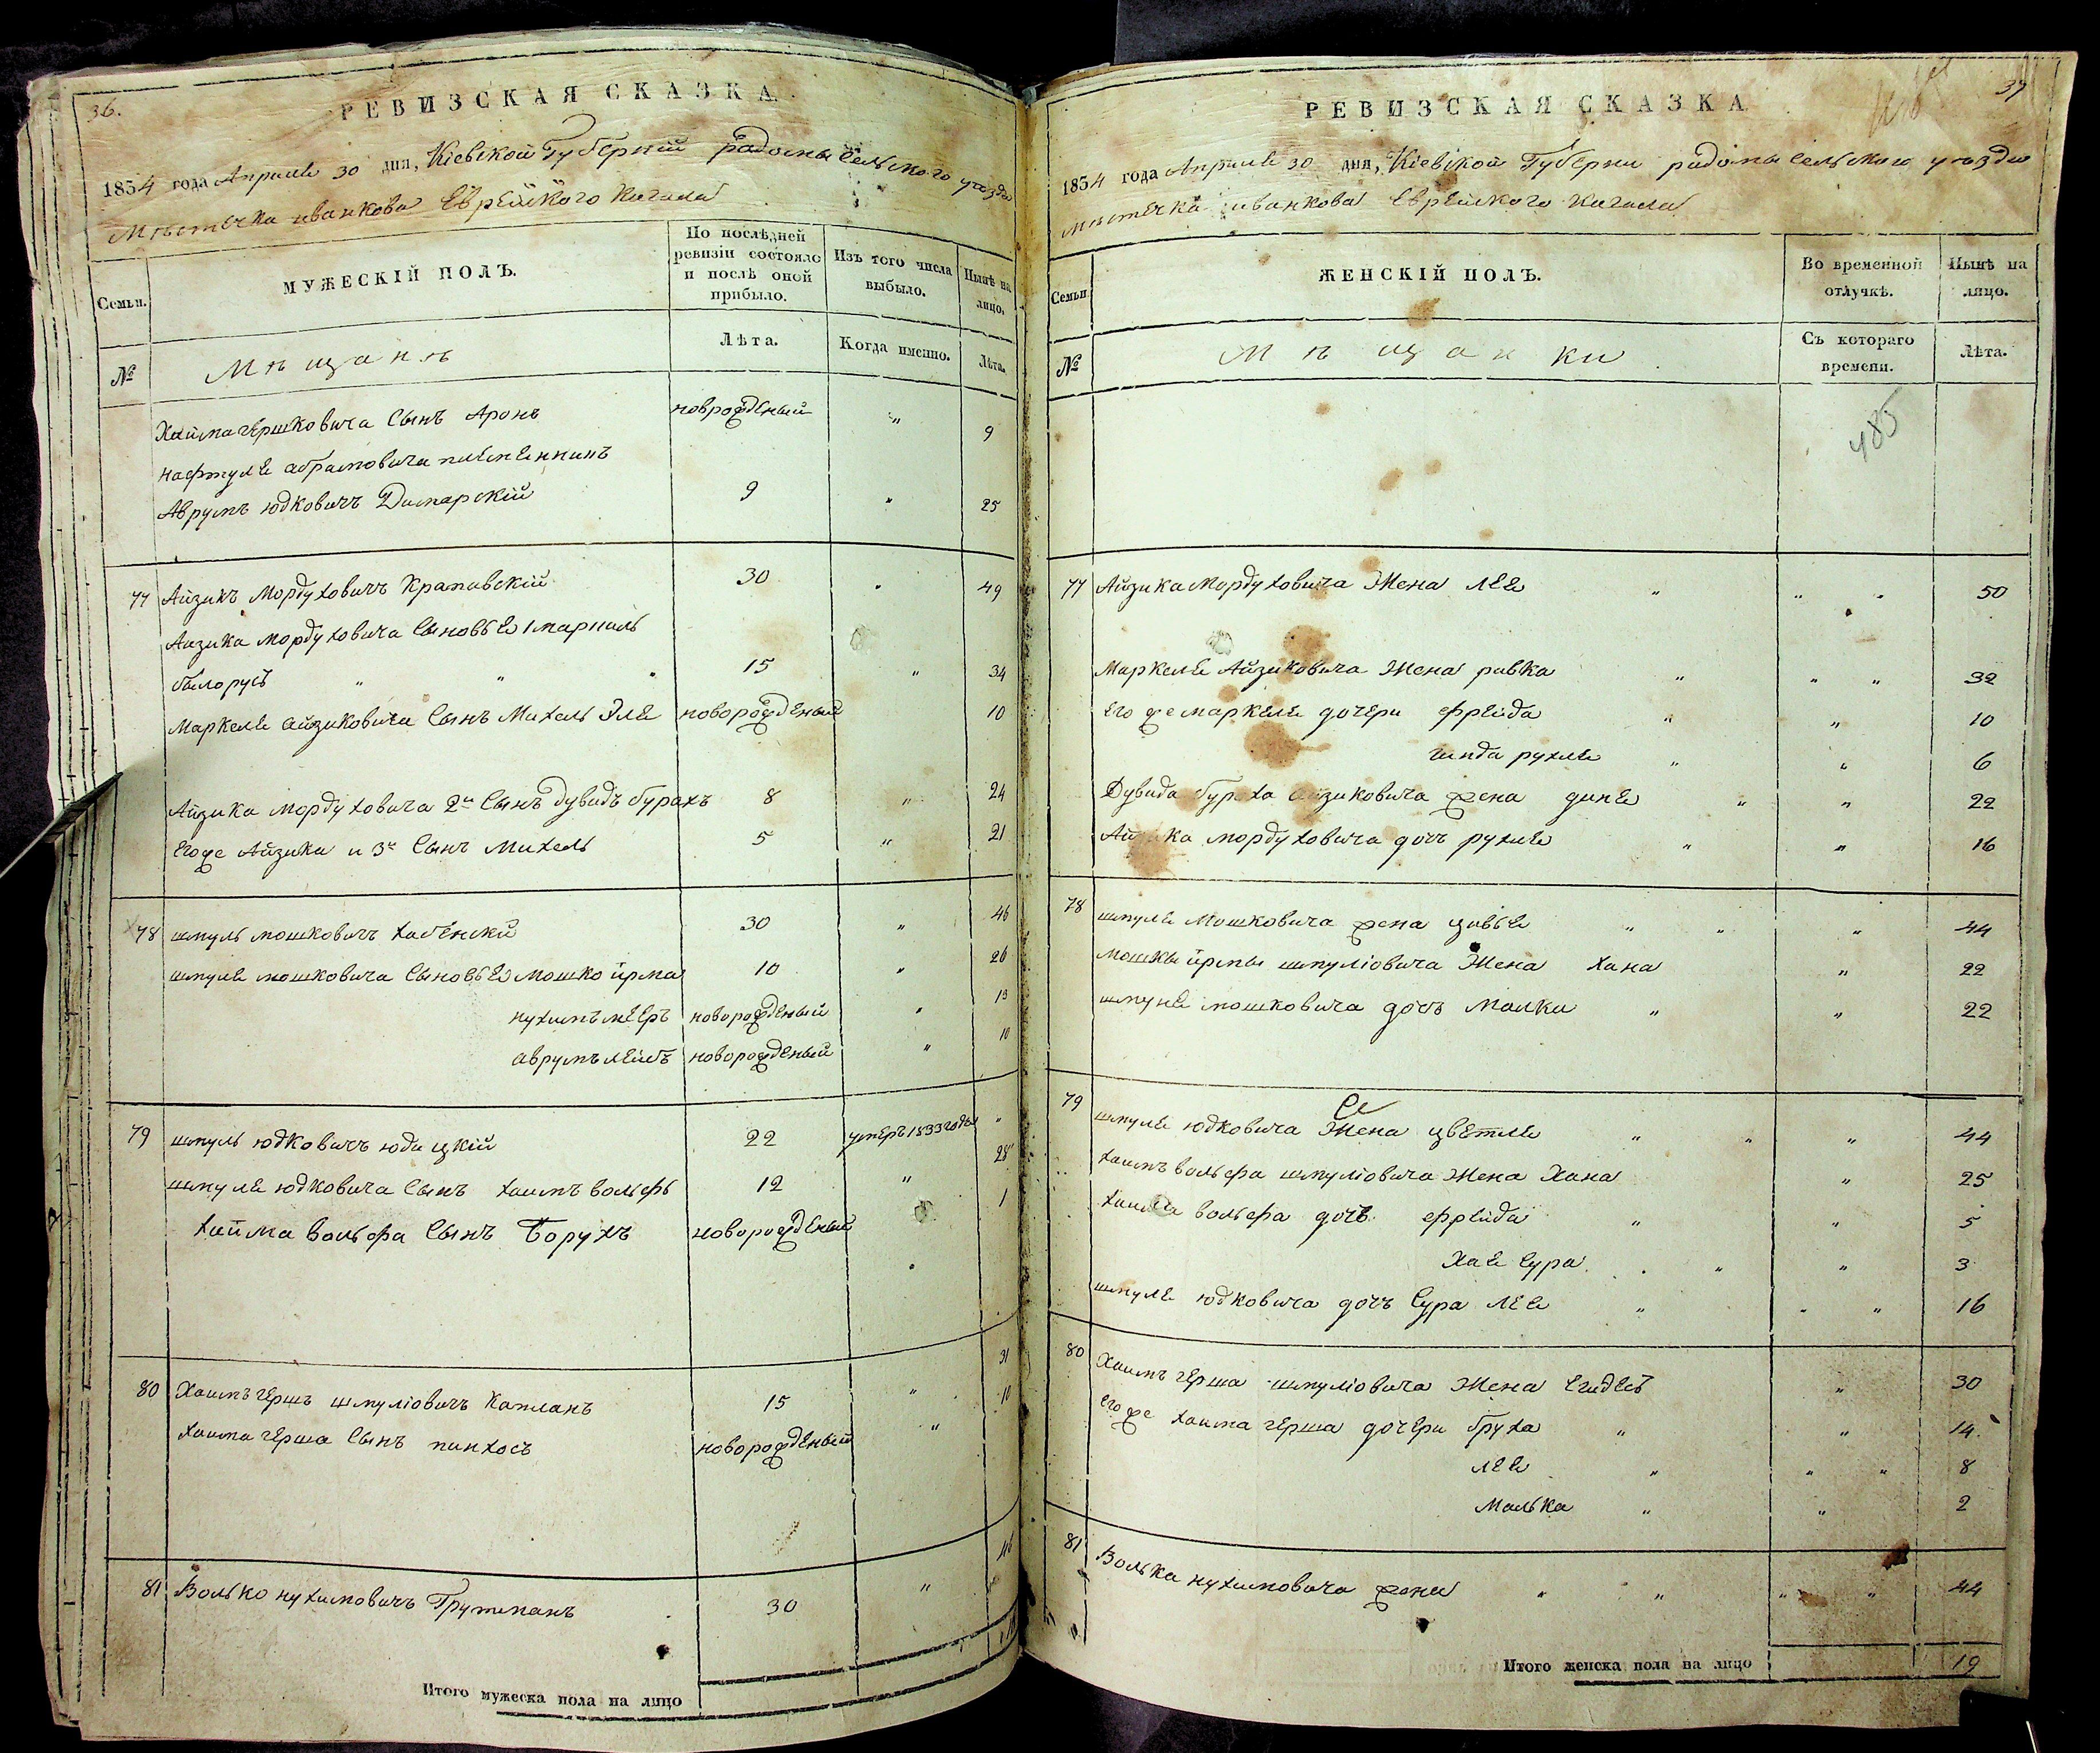 36.
РЕВИЗСКАЯ СКАЗКА.
1854 года Апреля 30 дня, Кіевской Губерніи радомысельского уезда
Мѣстечка иванкова Еврейского Кагала
Семьи.
МУЖЕСКІЙ ПОЛЪ.
По послѣдней ревизіи состояло и послѣ оной прибыло.
Изъ того числа выбыло.
Нынѣ на лицо.
№
Мѣщанѣ
Лѣта.
Когда именно.
Лѣта.
Хаймагершковича Сынъ Аронъ новрожденый " 9
нафтуле абрамовича племенникъ
Аврумъ юдковичъ Димарскій 9 " 25
77 Айзикъ Мордуховичъ Кратавскій 30 " 49
Аизика мордуховича Сыновье
былорусъ " " 15 " 34
Маркеле айзиковича Сынъ Михель Эле новорожденый 10
Айзика мордуховича 2й Сынъ дувидъ бурахъ 8 " 24
Егоже Айзика и 3й Сынъ Михель 5 " 21
78 шмуль мошковичъ хабенскій 30 " 46
шмуле мошковича Сыновье Мошко ирма 10 " 26
нухимъ мееръ новорожденый " 13
аврумъ лейбъ новорожденый " 10
79 шмуль юдковичъ юдицкій 22 умеръ 1833 годы "
шмуле юдковича Сынъ хаимъ вольфъ 12 " 28
хаима вольфа Сынъ Борухъ новорожденый 1
80 Хаимъ гершъ шмуліовичъ Капланъ 15 " 31
хаима герша Сынъ пинхосъ новорожденый " 10
81 Волько нухимовичъ Трутманъ 30 " 46
Итого мужеска пола на лицо
37
РЕВИЗСКАЯ СКАЗКА
1854 года Апреля 30 дня, Кіевской Губерни радомысельскаго уезда
мѣстечка иванкова Еврейского кагала
Семьи
ЖЕНСКІЙ ПОЛЪ.
Во временной отлучкѣ.
Нынѣ на лицо.
№
Мѣщанки
Съ котораго времени.
Лѣта.
485
77 Айзика Мордуховича Жена лее " " " 50
Маркеле Айзиковича Жена ривка " " " 32
его же маркеле дочери фрейда " " 10
гинда рухле " " 6
Дувида бураха айзиковича жена дине " " 22
Айзика мордуховича дочъ рухле " " 16
78 шмуле Мошковича жена цивье " " " 44
мошкы ирмы шмуліовича Жена хана " 22
шмуле мошковича дочъ Малки " " 22
79 шмуле юдковича Жена цветле " " " 44
хаимъ вольфа шмуліовича Жена Хана " 25
хаима вольфа дочъ фрейда " " 5
Хае Сура " " 3
шмуле юдковича дочъ Сура лее " " " 16
80 Хаимъ герша шмуліовича Жена " 30
его же хаима герша дочери бруха " " 14
лее " " " 8
Малька " " 2
81 Волька нухимовича жена " " " " 44
Итого женска пола на лицо 19